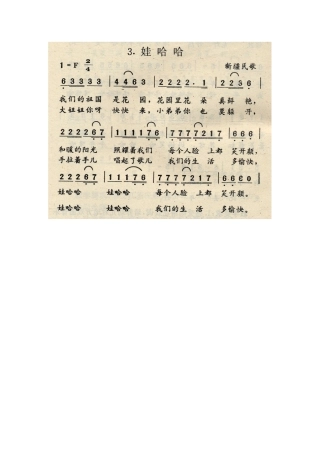 3. 娃哈哈
1=F 2/4 新疆民歌
6 3 3 3 3 | 4 4 6 3 | 2 2 2 2. 1 | 2 2 3 6 |
我们的祖国 是花 园, 花园里花 朵 真鲜 艳,
大姐姐你呀 快快 来, 小弟弟你 也 莫躲 开,
1 2 2 2 6 7 | 1 1 1 7 6 | 7 7 7 7 2 1 7 | 6 6 6 0 |
和暖的阳光 照耀着我们 每个人脸 上都 笑开颜,
手拉着手儿 唱起了歌儿 我们的生 活 多愉快,
2 2 2 6 7 | 1 1 1 7 6 | 7 7 7 7 2 1 7 | 6 6 6 0 |
娃哈哈 娃哈哈 每个人脸 上都 笑开颜。
娃哈哈 娃哈哈 我们的生 活 多愉快。